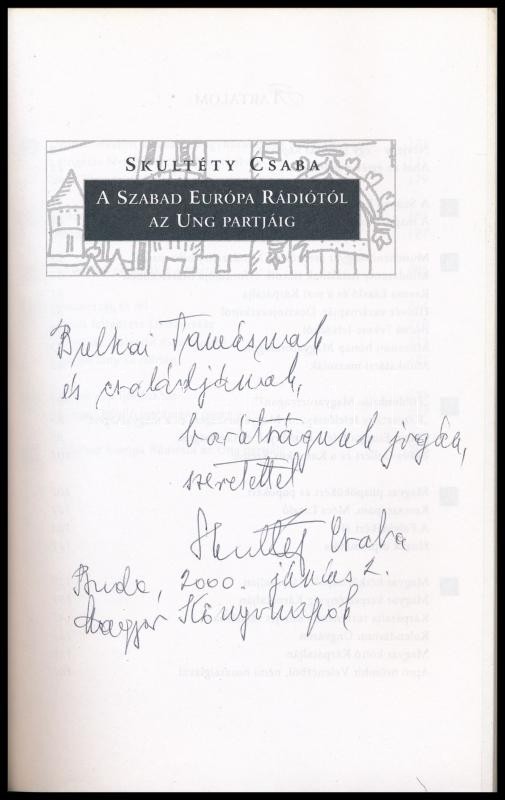 SKULTÉTY CSABA
A SZABAD EURÓPA RÁDIÓTÓL
AZ UNG PARTJÁIG
Bulkai Tamásnak
és családjának,
barátságunk jogán,
szeretettel
Skultéty Csaba
Buda, 2000. június 2.
Magyar Könyvnapok